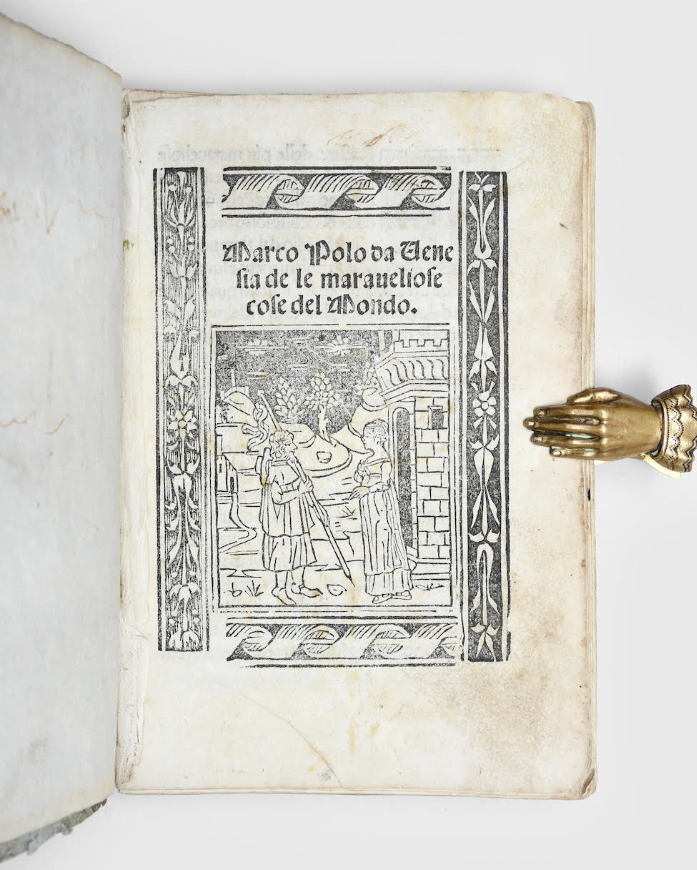 Marco Polo da Uene
sia de le maraueliose
cose del Mondo.